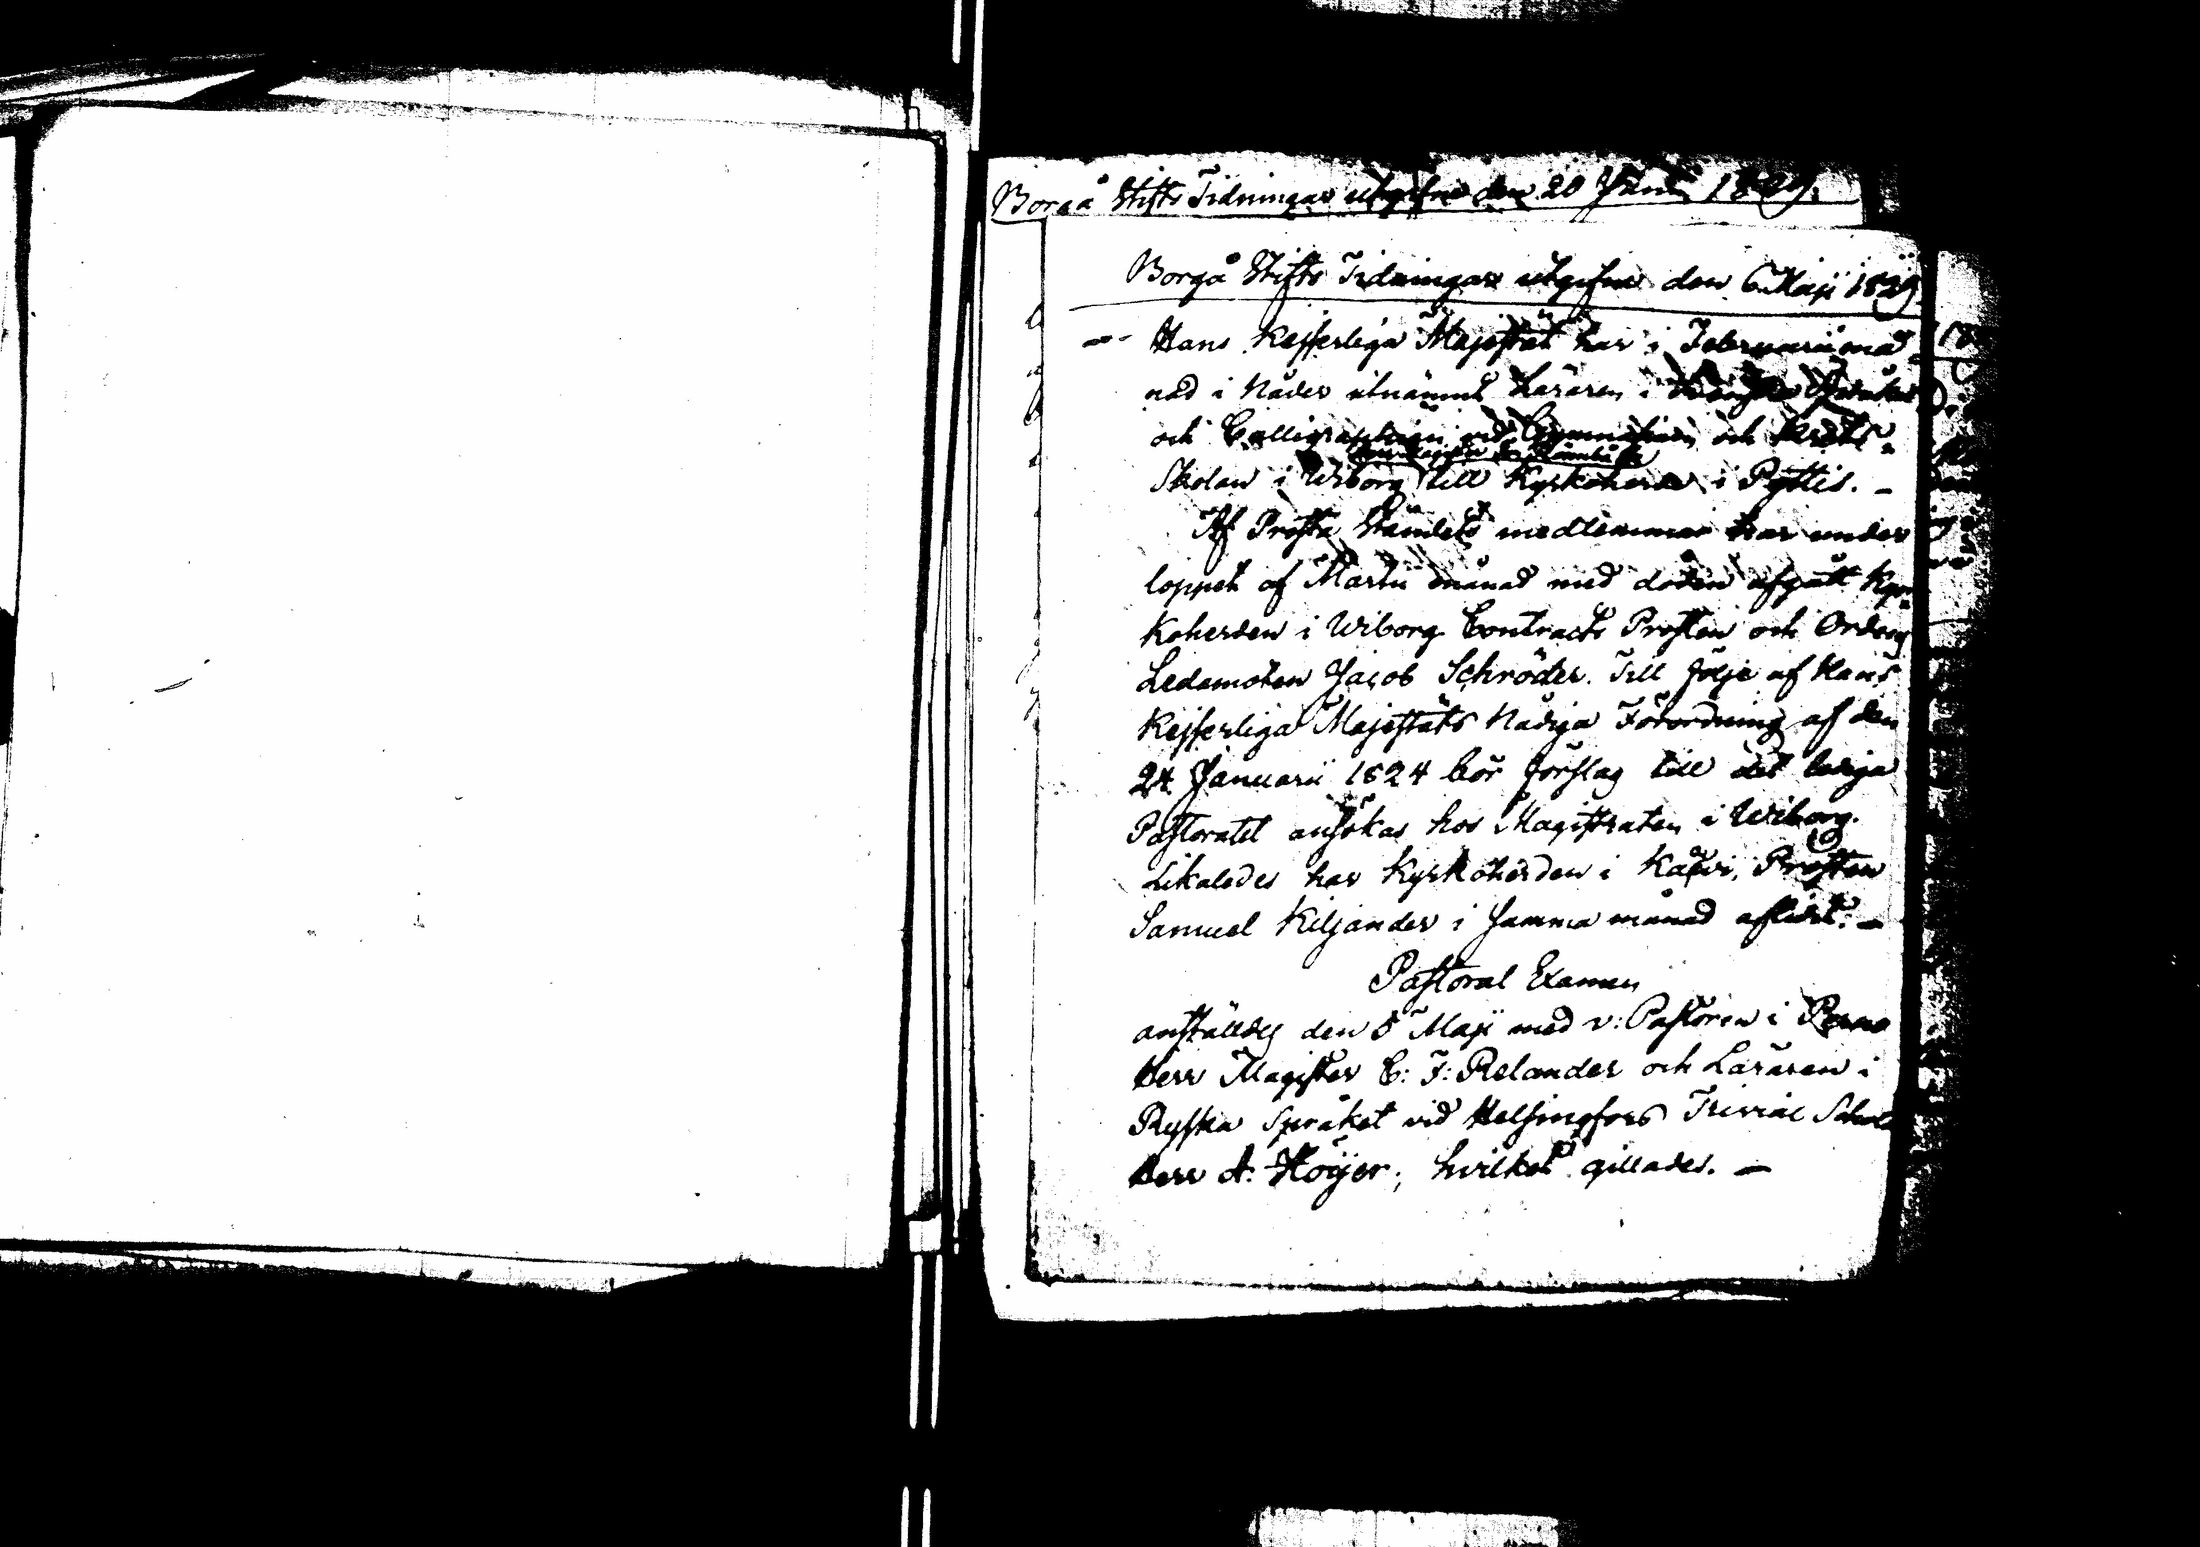 Borgå Stifts Tidningar utgifne den 20 Junii 1829.
Borgå Stifts Tidningar utgifne den 6 Maji 1829
Hans Kejserliga Majestät har i Februarii må
nad i Nåder utnämnt Läraren i Svenska Språket
och Calligraphien vid Gymnasium och Krets-
Skolan i Wiborg till Kyrkoherde i Pyttis. -
Af Presta Ståndets medlemmar har under
loppet af Martii månad med döden afgått Kyr-
koherden i Wiborg Contracts Prosten och Ordens
Ledamoten Jacob Schröder. Till följe af Hans
Kejserliga Majestäts Nådiga Förordning af den
24 Januarii 1824 bör förslag till det lediga
Pastoratet ansökas hos Magistraten i Wiborg.
Likaledes har Kyrkoherden i Kafvi, Prosten
Samuel Kiljander i samma månad aflidit. -
Pastoral Examen
anställdes den 5 Maji med v: Pastoren i Perno
Herr Magister C: F: Relander och Läraren i
Ryska Språket vid Helsingfors Trivial Schola
Herr A. Höijer; hvilket gillades. -